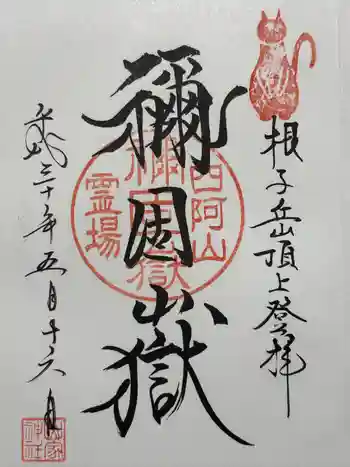 根子岳頂上登拝
禰固嶽
四阿山
禰固嶽
霊場
平成三十年五月十六日
山家神社